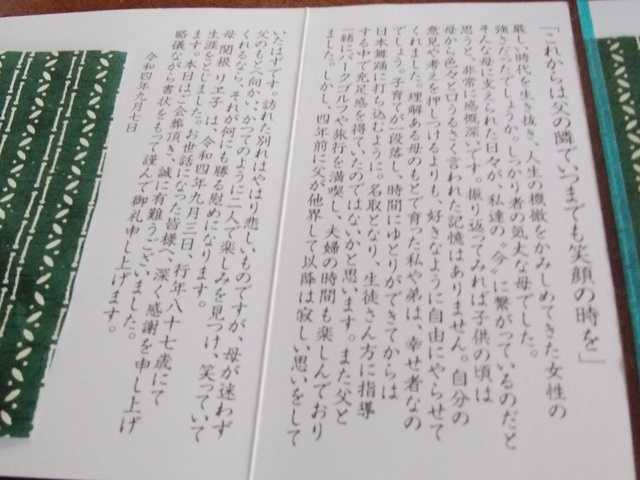 「これからは父の隣でいつまでも笑顔の時を」
厳しい時代を生き抜き、人生の機微をかみしめてきた女性の
強さだったでしょうか。しっかり者の気丈な母でした。
そんな母に支えられた日々が、私達の“今”に繋がっているのだと
思うと、非常に感慨深いです。振り返ってみれば子供の頃は
母から色々と口うるさく言われた記憶はありません。自分の
意見や考えを押しつけるよりも、好きなように自由にやらせて
くれました。理解ある母のもとで育った私や弟は、幸せ者なの
でしょう。子育てが一段落し、時間にゆとりができてからは
日本舞踊に打ち込むように。名取となり、生徒さん方に指導
する中で充足感を得ていたのではないかと思います。また父と
一緒にパークゴルフや旅行を満喫し、夫婦の時間も楽しんでおり
ました。しかし、四年前に父が他界して以降は寂しい思いをして
いたはずです。訪れた別れはやはり悲しいものですが、母が迷わず
父のもとへ向かい、かつてのように二人で楽しみを見つけ、笑っていて
くれるなら、それが何にも勝る慰めになります。
母 関根 リヱ子 は、令和四年九月三日、行年八十七歳にて
生涯をとじました。お世話になった皆様へ、深く感謝を申し上げ
ます。本日はご会葬頂き、誠に有難うございました。
略儀ながら書状をもって謹んで御礼申し上げます。
令和四年九月七日